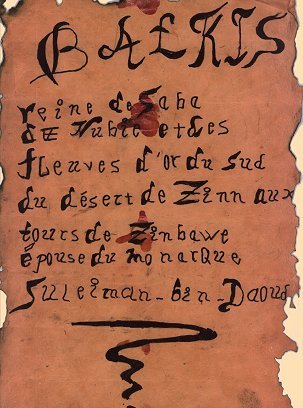 BALKIS
reine de Saba
de Nubie et des
fleuves d'or du Sud
du désert de Zinn aux
tours de Zinbawe
épouse du monarque
Suleiman-bin-Daoud